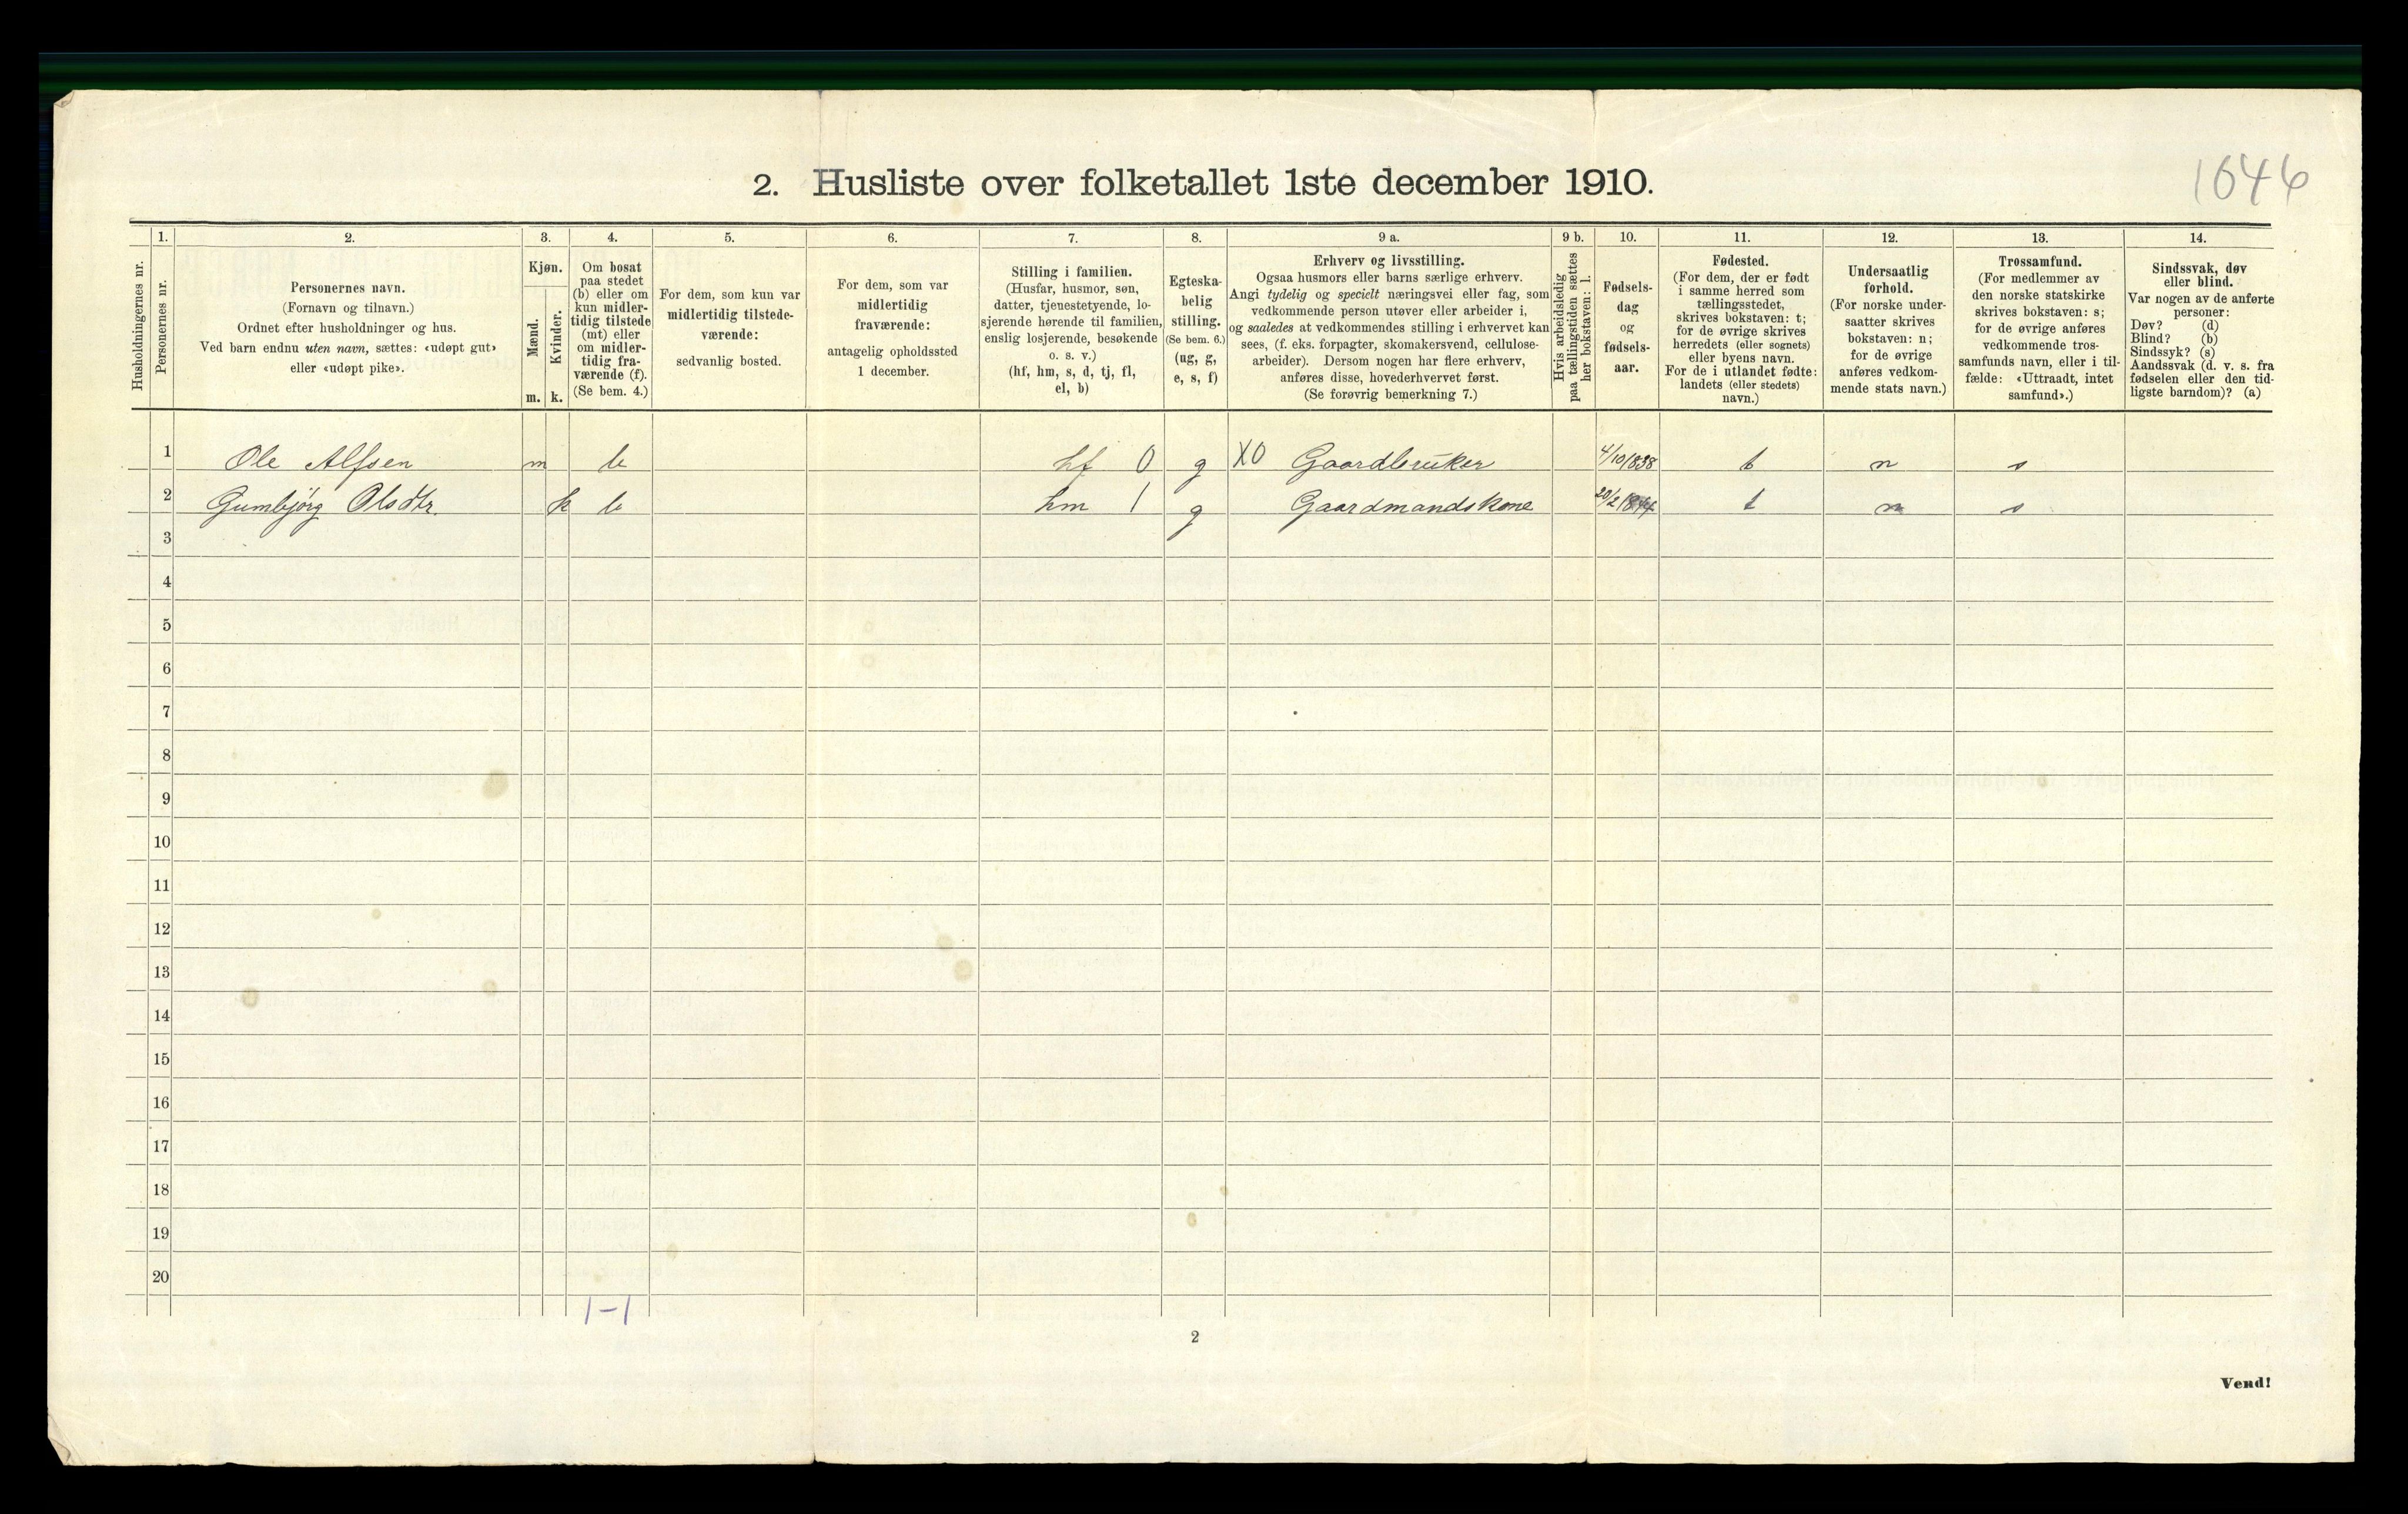 1646
2. Husliste over folketallet 1ste december 1910.
Husholdningernes nr.
1.
Personernes nr.
2.
Personernes navn.
(Fornavn og tilnavn.)
Ordnet efter husholdninger og hus.
Ved barn endnu uten navn, sættes: «udøpt gut»
eller «udøpt pike».
3.
Kjøn.
Mænd.
Kvinder.
m. k.
4.
Om bosat
paa stedet
(b) eller om
kun midler-
tidig tilstede
(mt) eller
om midler-
tidig fra-
værende (f).
(Se bem. 4.)
5.
For dem, som kun var
midlertidig tilstede-
værende:
sedvanlig bosted.
6.
For dem, som var
midlertidig
fraværende:
antagelig opholdssted
1 december.
7.
Stilling i familien.
(Husfar, husmor, søn,
datter, tjenestetyende, lo-
sjerende hørende til familien,
enslig losjerende, besøkende
o. s. v.)
(hf, hm, s, d, tj, fl,
el, b)
8.
Egteska-
belig
stilling.
(Se bem. 6.)
(ug, g,
e, s, f)
9 a.
Erhverv og livsstilling.
Ogsaa husmors eller barns særlige erhverv.
Angi tydelig og specielt næringsvei eller fag, som
vedkommende person utøver eller arbeider i,
og saaledes at vedkommendes stilling i erhvervet kan
sees, (f. eks. forpagter, skomakersvend, cellulose-
arbeider). Dersom nogen har flere erhverv,
anføres disse, hovederhvervet først.
(Se forøvrig bemerkning 7.)
9 b.
Hvis arbeidsledig
paa tællingstiden sættes
her bokstaven: l.
10.
Fødsels-
dag
og
fødsels-
aar.
11.
Fødested.
(For dem, der er født
i samme herred som
tællingsstedet,
skrives bokstaven: t;
for de øvrige skrives
herredets (eller sognets)
eller byens navn.
For de i utlandet fødte:
landets (eller stedets)
navn.)
12.
Undersaatlig
forhold.
(For norske under-
saatter skrives
bokstaven: n;
for de øvrige
anføres vedkom-
mende stats navn.)
13.
Trossamfund.
(For medlemmer av
den norske statskirke
skrives bokstaven: s;
for de øvrige anføres
vedkommende tros-
samfunds navn, eller i til-
fælde: «Uttraadt, intet
samfund».)
14.
Sindssvak, døv
eller blind.
Var nogen av de anførte
personer:
Døv? (d)
Blind? (b)
Sindssyk? (s)
Aandssvak (d. v. s. fra
fødselen eller den tid-
ligste barndom)? (a)
1 Ole Alfsen m b hf 0 g X0 Gaardbruker 4/10 1838 t n s
2 Gumbjørg Olsdtr. k b hm 1 g Gaardmandskone 20/2 1844 t n s
3
4
5
6
7
8
9
10
11
12
13
14
15
16
17
18
19
20
1-1
2
Vend!